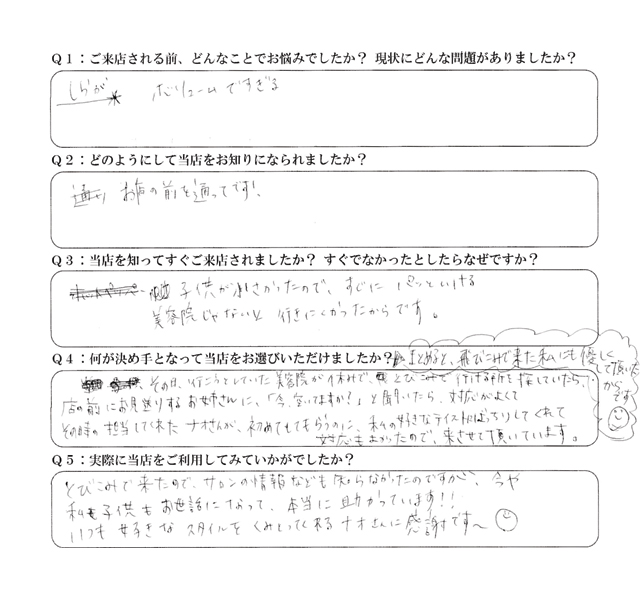 Q1：ご来店される前、どんなことでお悩みでしたか？ 現状にどんな問題がありましたか？
しらが ボリュームですぎる
Q2：どのようにして当店をお知りになられましたか？
お店の前を通ってです!
Q3：当店を知ってすぐご来店されましたか？ すぐでなかったとしたらなぜですか？
子供が小さかったので、すぐに パッといける
美容院じゃないと 行きにくかったからです。
Q4：何が決め手となって当店をお選びいただけましたか？
まとめると、飛びこみで来た私にも優しく
して頂いた
から
です
その日、行こうとしていた美容院が休みで、とびこみで行ける所を探していたら、
店の前にお見送りするお姉さんに、「今、空いてますか？」と聞いたら、対応がよくて
その時の担当してくれたナオさんが、初めてしてもらうのに、私の好きなテイストばっちりしてくれて
対応もよかったので、来させて頂いています。
Q5：実際に当店をご利用してみていかがでしたか？
とびこみで来たので、サロンの情報なども知らなかったのですが、今や
私も子供もお世話になって、本当に助かっています!!
いつも好きなスタイルをくみとってくれるナオさんに感謝です〜